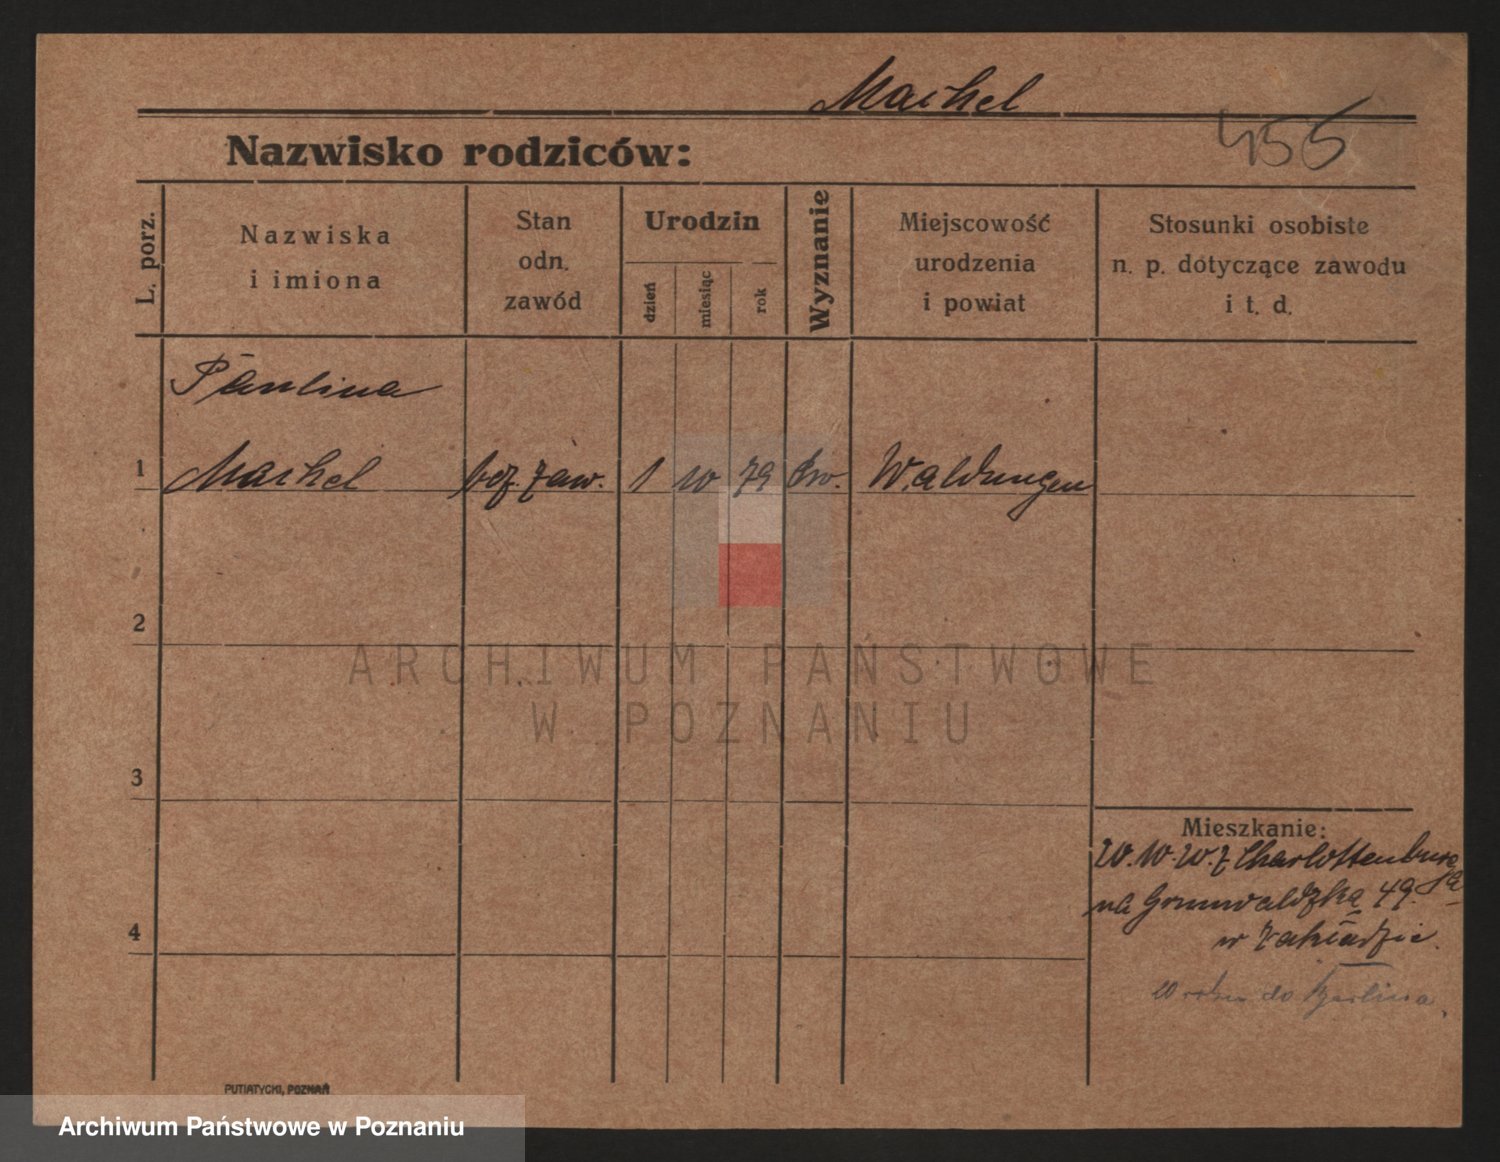 Maikel
Nazwisko rodziców:
455
L. porz.
Nazwiska
i imiona
Stan
odn.
zawód
Urodzin
dzień
miesiąc
rok
Wyznanie
Miejscowość
urodzenia
i powiat
Stosunki osobiste
n. p. dotyczące zawodu
i t. d.
Paulina
1 Maikel bez zaw. 1 10 79 Waldungen
2
ARCHIWUM PAŃSTWOWE
W POZNANIU
3
Mieszkanie:
z Charlottenburga
na Grunwaldzką 49.
4
w zakładzie.
20 roku do Berlina.
PUTIATYCKI, POZNAŃ
Archiwum Państwowe w Poznaniu